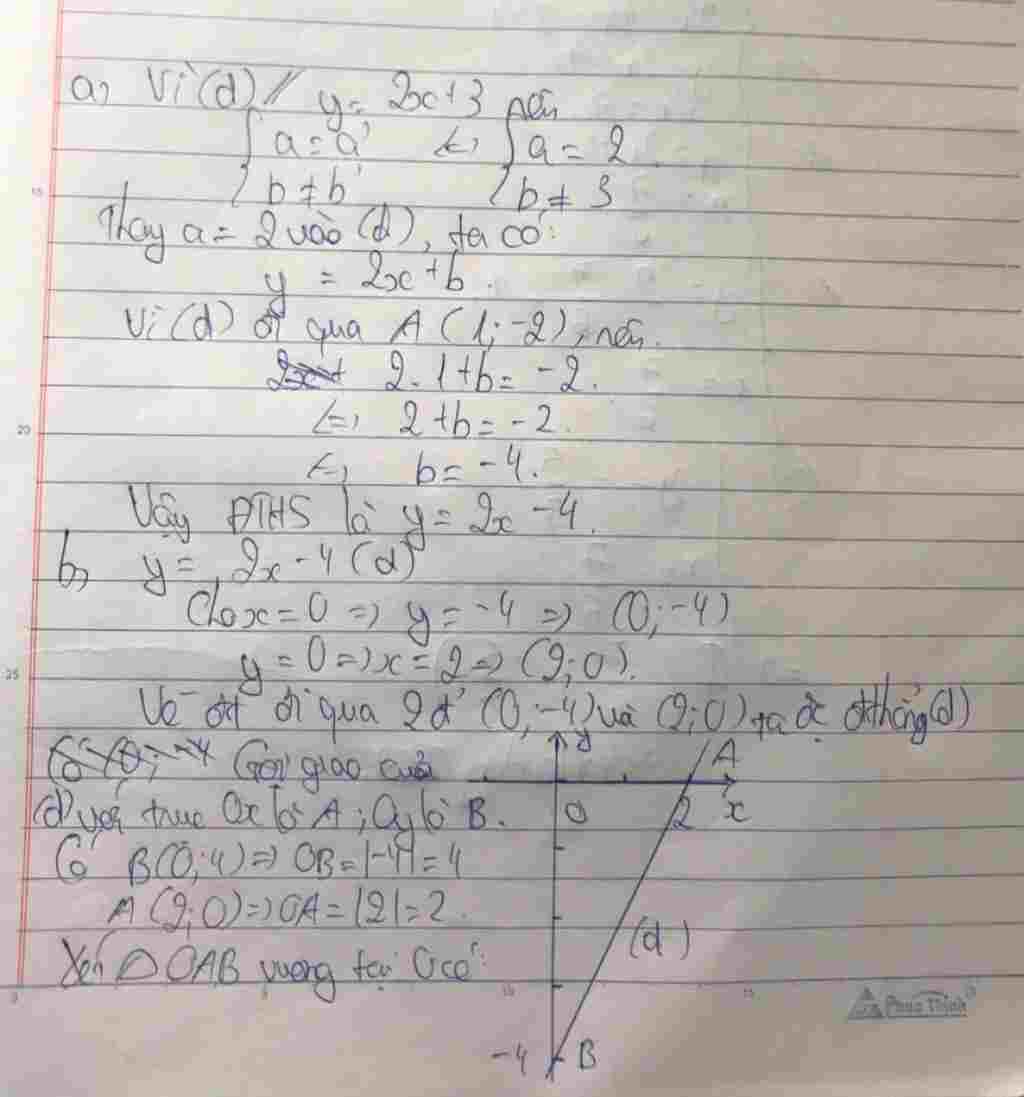 a, Vì (d) // y = 2x+3 nên
{ a = a' <=> { a = 2
{ b ≠ b' { b ≠ 3
Thay a = 2 vào (d), ta có:
y = 2x + b.
Vì (d) đi qua A (1; -2), nên.
2.1+b = -2.
<=> 2+b = -2.
<=> b = -4.
Vậy ĐTHS là y = 2x - 4.
b, y = 2x - 4 (d)
Cho x = 0 => y = -4 => (0; -4)
y = 0 => x = 2 => (2; 0).
Vẽ đt đi qua 2 đ' (0; -4) và (2; 0) ta đc đt thẳng (d)
Gọi giao của
(d) với trục Ox là A; Oy là B.
Có B(0; 4) => OB = |-4| = 4
A (2; 0) => OA = |2| = 2.
Xét △ OAB vuông tại O có:
y
A
O
2
x
(d)
-4
B
15
20
25
0
5
10
15
Phúc Thịnh